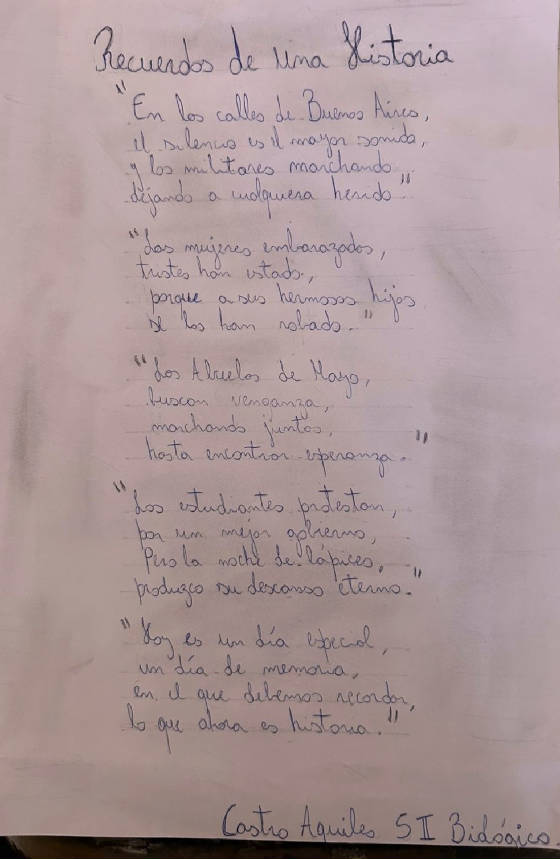 Recuerdos de una Historia
"En las calles de Buenos Aires,
el silencio es el mayor sonido,
y los militares marchando
dejando a cualquiera herido"
"Las mujeres embarazadas,
tristes han estado,
porque a sus hermosos hijos
se los han robado."
"Las Abuelas de Mayo,
buscan venganza,
marchando juntas,
hasta encontrar esperanza."
"Los estudiantes protestan,
por un mejor gobierno,
Pero la noche de lápices,
produzco su descanso eterno."
"Hoy es un día especial,
un día de memoria,
en el que debemos recordar,
lo que ahora es historia."
Castro Aquiles 5 II Biológico